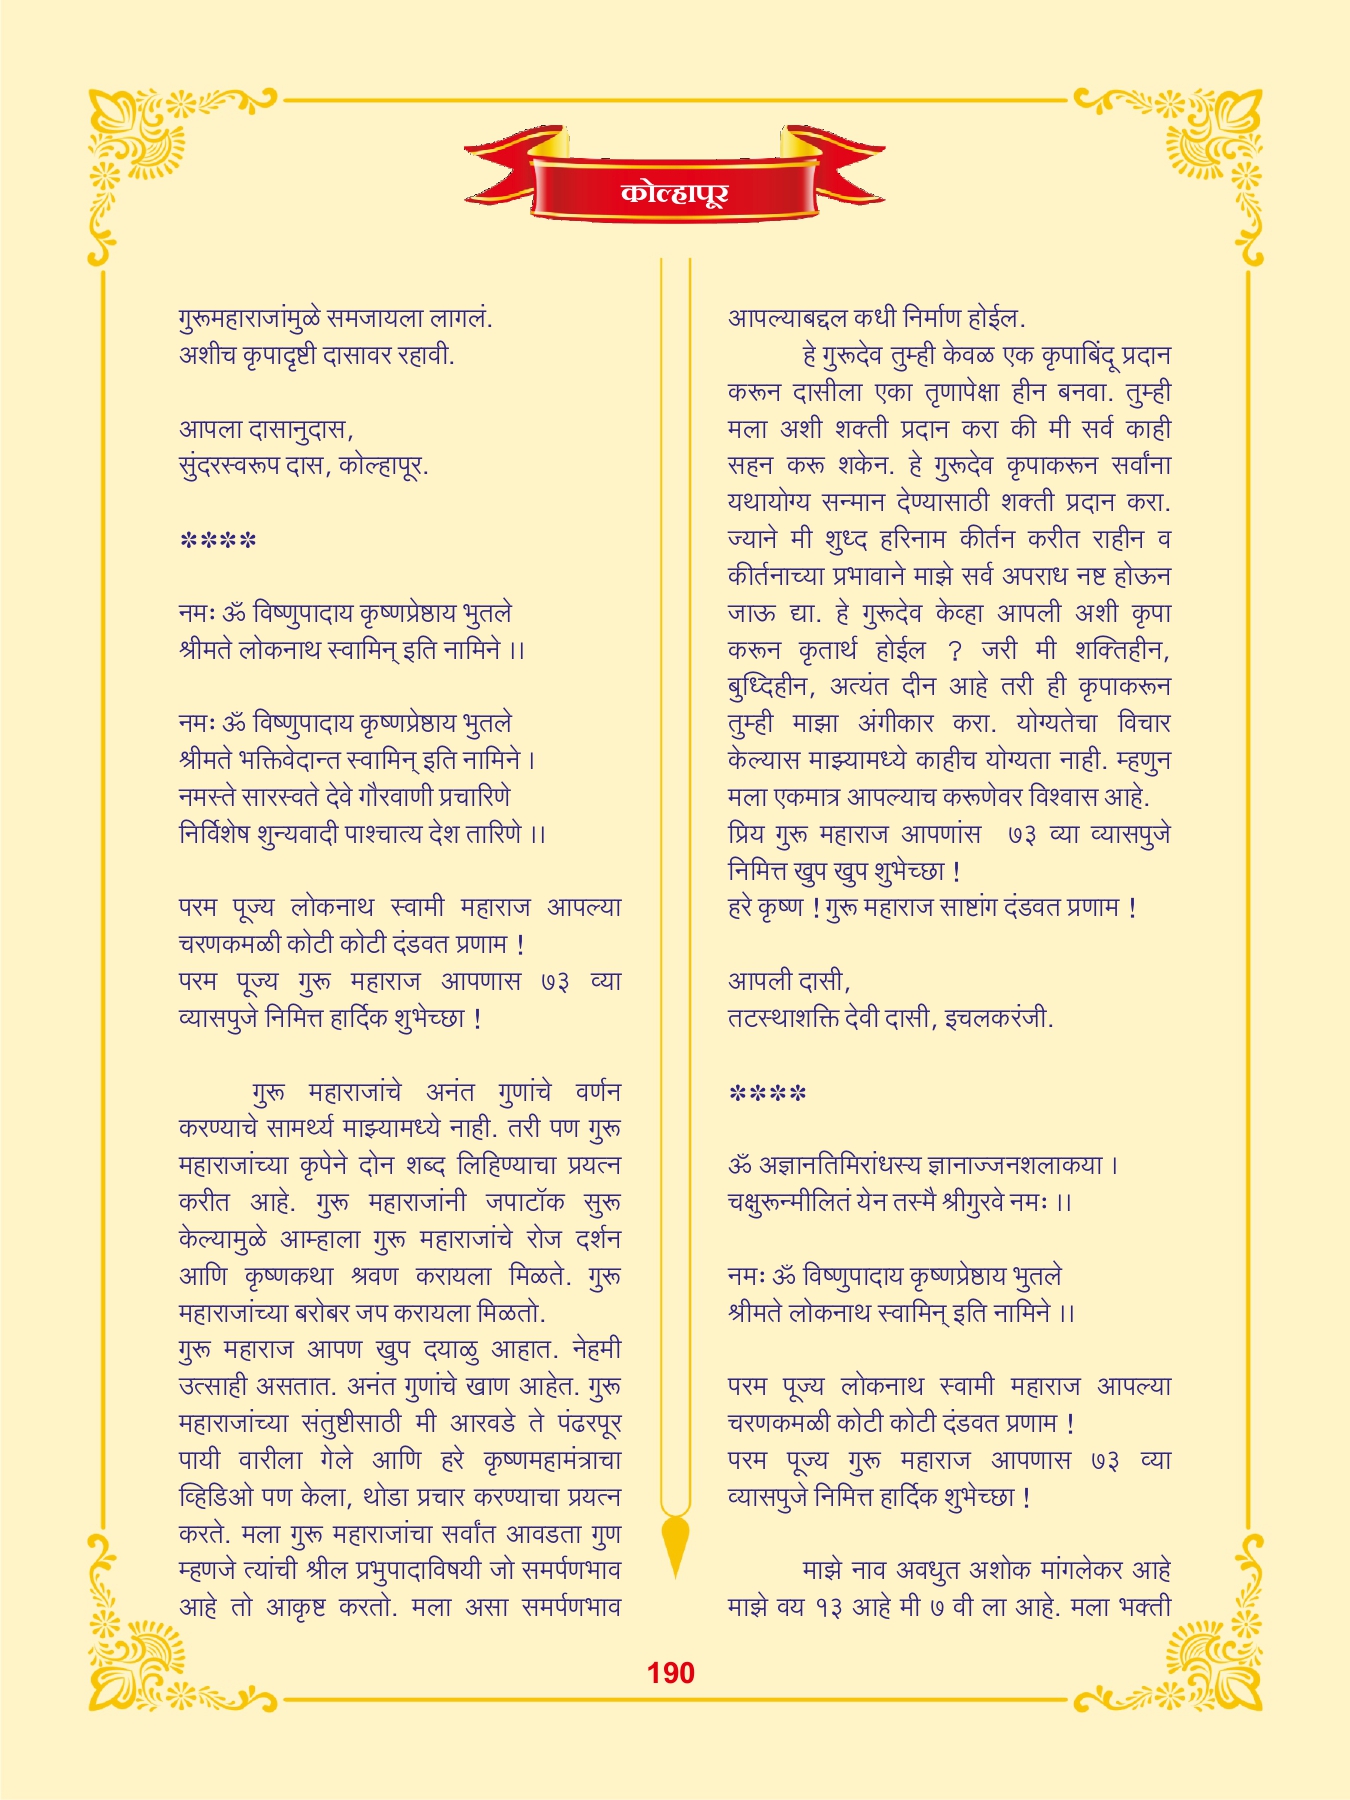 कोल्हापूर
गुरूमहाराजांमुळे समजायला लागलं.
अशीच कृपादृष्टी दासावर रहावी.
आपला दासानुदास,
सुंदरस्वरूप दास, कोल्हापूर.
****
नमः ॐ विष्णुपादाय कृष्णप्रेष्ठाय भुतले
श्रीमते लोकनाथ स्वामिन् इति नामिने ।।
नमः ॐ विष्णुपादाय कृष्णप्रेष्ठाय भुतले
श्रीमते भक्तिवेदान्त स्वामिन् इति नामिने ।
नमस्ते सारस्वते देवे गौरवाणी प्रचारिणे
निर्विशेष शुन्यवादी पाश्चात्य देश तारिणे ।।
परम पूज्य लोकनाथ स्वामी महाराज आपल्या
चरणकमळी कोटी कोटी दंडवत प्रणाम !
परम पूज्य गुरू महाराज आपणास ७३ व्या
व्यासपुजे निमित्त हार्दिक शुभेच्छा !
गुरू महाराजांचे अनंत गुणांचे वर्णन
करण्याचे सामर्थ्य माझ्यामध्ये नाही. तरी पण गुरू
महाराजांच्या कृपेने दोन शब्द लिहिण्याचा प्रयत्न
करीत आहे. गुरू महाराजांनी जपाटॉक सुरू
केल्यामुळे आम्हाला गुरू महाराजांचे रोज दर्शन
आणि कृष्णकथा श्रवण करायला मिळते. गुरू
महाराजांच्या बरोबर जप करायला मिळतो.
गुरू महाराज आपण खुप दयाळु आहात. नेहमी
उत्साही असतात. अनंत गुणांचे खाण आहेत. गुरू
महाराजांच्या संतुष्टीसाठी मी आरवडे ते पंढरपूर
पायी वारीला गेले आणि हरे कृष्णमहामंत्राचा
व्हिडिओ पण केला, थोडा प्रचार करण्याचा प्रयत्न
करते. मला गुरू महाराजांचा सर्वांत आवडता गुण
म्हणजे त्यांची श्रील प्रभुपादाविषयी जो समर्पणभाव
आहे तो आकृष्ट करतो. मला असा समर्पणभाव
आपल्याबद्दल कधी निर्माण होईल.
हे गुरूदेव तुम्ही केवळ एक कृपाबिंदू प्रदान
करून दासीला एका तृणापेक्षा हीन बनवा. तुम्ही
मला अशी शक्ती प्रदान करा की मी सर्व काही
सहन करू शकेन. हे गुरूदेव कृपाकरून सर्वांना
यथायोग्य सन्मान देण्यासाठी शक्ती प्रदान करा.
ज्याने मी शुध्द हरिनाम कीर्तन करीत राहीन व
कीर्तनाच्या प्रभावाने माझे सर्व अपराध नष्ट होऊन
जाऊ द्या. हे गुरूदेव केव्हा आपली अशी कृपा
करून कृतार्थ होईल ? जरी मी शक्तिहीन,
बुध्दिहीन, अत्यंत दीन आहे तरी ही कृपाकरून
तुम्ही माझा अंगीकार करा. योग्यतेचा विचार
केल्यास माझ्यामध्ये काहीच योग्यता नाही. म्हणुन
मला एकमात्र आपल्याच करूणेवर विश्वास आहे.
प्रिय गुरू महाराज आपणांस ७३ व्या व्यासपुजे
निमित्त खुप खुप शुभेच्छा !
हरे कृष्ण ! गुरू महाराज साष्टांग दंडवत प्रणाम !
आपली दासी,
तटस्थाशक्ति देवी दासी, इचलकरंजी.
****
ॐ अज्ञानतिमिरांधस्य ज्ञानाज्जनशलाकया ।
चक्षुरून्मीलितं येन तस्मै श्रीगुरवे नमः ।।
नमः ॐ विष्णुपादाय कृष्णप्रेष्ठाय भुतले
श्रीमते लोकनाथ स्वामिन् इति नामिने ।।
परम पूज्य लोकनाथ स्वामी महाराज आपल्या
चरणकमळी कोटी कोटी दंडवत प्रणाम !
परम पूज्य गुरू महाराज आपणास ७३ व्या
व्यासपुजे निमित्त हार्दिक शुभेच्छा !
माझे नाव अवधुत अशोक मांगलेकर आहे
माझे वय १३ आहे मी ७ वी ला आहे. मला भक्ती
190